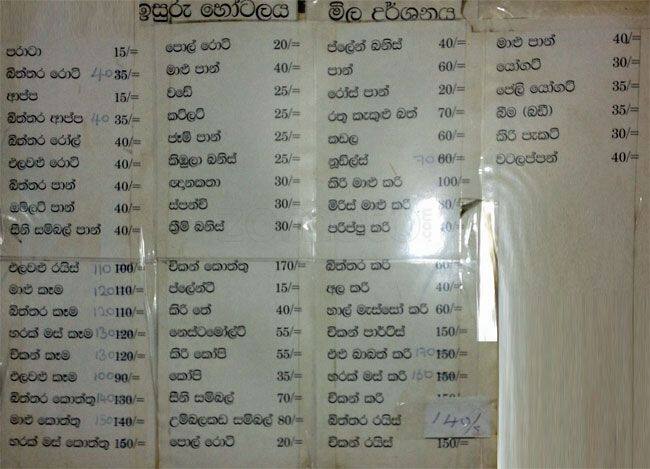 ඉසුරු හෝටලය මිල දර්ශනය
පරාටා 15/=
බිත්තර රොටි 40 35/=
ආප්ප 15/=
බිත්තර ආප්ප 40 35/=
බිත්තර රෝල් 40/=
එලවළු රොටි 40/=
බිත්තර පාන් 40/=
ඔම්ලට් පාන් 40/=
සීනි සම්බල් පාන් 40/=
එලවළු රයිස් 110 100/=
මාළු කෑම 120 110/=
බිත්තර කෑම 120 110/=
හරක් මස් කෑම 130 120/=
චිකන් කෑම 130 120/=
එලවළු කෑම 100 90/=
බිත්තර කොත්තු 140 130/=
මාළු කොත්තු 150 140/=
හරක් මස් කොත්තු 150/=
පොල් රොටි 20/=
මාළු පාන් 40/=
වඩේ 25/=
කට්ලට් 25/=
ජෑම් පාන් 25/=
කිඹුලා බනිස් 25/=
ඥානකතා 30/=
ස්පන්චි 30/=
ක්‍රීම් බනිස් 30/=
චිකන් කොත්තු 170/=
ප්ලේන්ටි 15/=
කිරි තේ 40/=
නෙස්ටමෝල්ට් 55/=
කිරි කෝපි 55/=
කෝපි 35/=
සීනි සම්බල් 70/=
උම්බලකඩ සම්බල් 80/=
පොල් රොටි 20/=
ප්ලේන් බනිස් 40/=
පාන් 60/=
රෝස් පාන් 20/=
රතු කැකුළු බත් 70/=
කඩල 60/=
නූඩ්ල්ස් 70 60/=
කිරි මාළු කරි 100/=
මිරිස් මාළු කරි 80/=
පරිප්පු කරි 40/=
බිත්තර කරි 60/=
අල කරි 40/=
හාල් මැස්සෝ කරි 60/=
චිකන් පාර්ට්ස් 150/=
එළු බාබත් කරි 170 150/=
හරක් මස් කරි 160 150/=
චිකන් කරි 150/=
බිත්තර රයිස් 140/=
චිකන් රයිස් 150/=
මාළු පාන් 40/=
යෝගට් 30/=
ජෙලි යෝගට් 35/=
බීම (බඩී) 35/=
කිරි පැකට් 30/=
වටලප්පන් 40/=